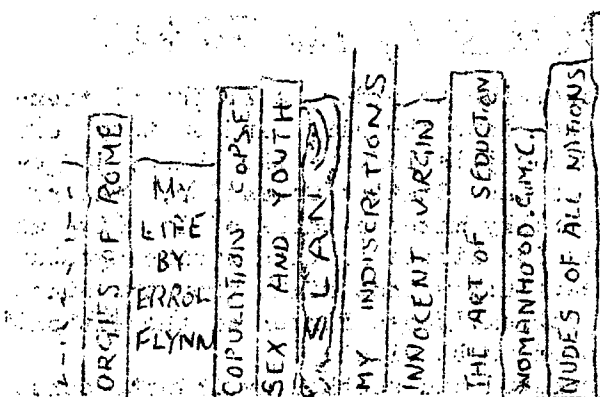 ORGIES OF ROME
MY
LIFE
BY
ERROL
FLYNN
COPULATION COPSE
SEX AND YOUTH
ELAN
MY INDISCRETIONS
INNOCENT VIRGIN
THE ART OF SEDUCTION
WOMANHOOD. E.M.C.
NUDES OF ALL NATIONS